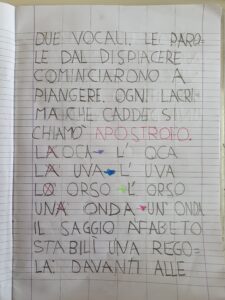 DUE VOCALI. LE PARO-
LE DAL DISPIACERE
COMINCIARONO A
PIANGERE. OGNI LACRI-
MA CHE CADDE SI
CHIAMÒ APOSTROFO.
LA OCA → L' OCA
LA UVA → L' UVA
LO ORSO → L' ORSO
UNA ONDA → UN' ONDA
IL SAGGIO AFABETO
STABILÌ UNA REGO-
LA: DAVANTI ALLE